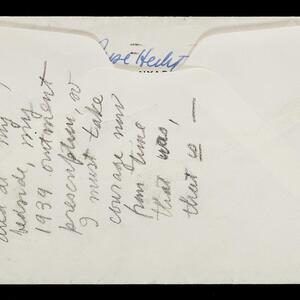 Hecht
at my
bedside, my
1939 ointment
prescription, so
I must take
courage now
from time
that was,
that is —